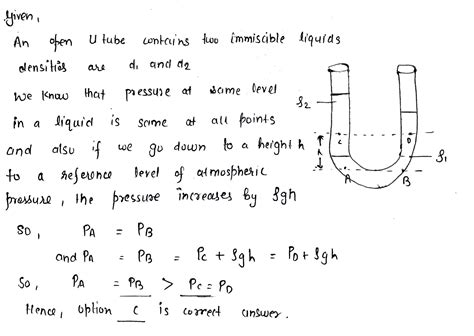 Given,
An open U tube contains two immiscible liquids
densities are d₁ and d₂
We know that pressure at same level
in a liquid is same at all points
and also if we go down to a height h
to a reference level of atmospheric
pressure, the pressure increases by ρgh
So, P_A = P_B
and P_A = P_B = P_C + ρgh = P_D + ρgh
So, P_A = P_B > P_C = P_D
Hence, option C is correct answer.
ρ₂
C
D
h
ρ₁
A
B